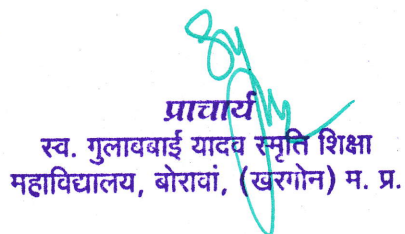 प्राचार्य
स्व. गुलाबबाई यादव स्मृति शिक्षा
महाविद्यालय, बोरावां, (खरगोन) म. प्र.